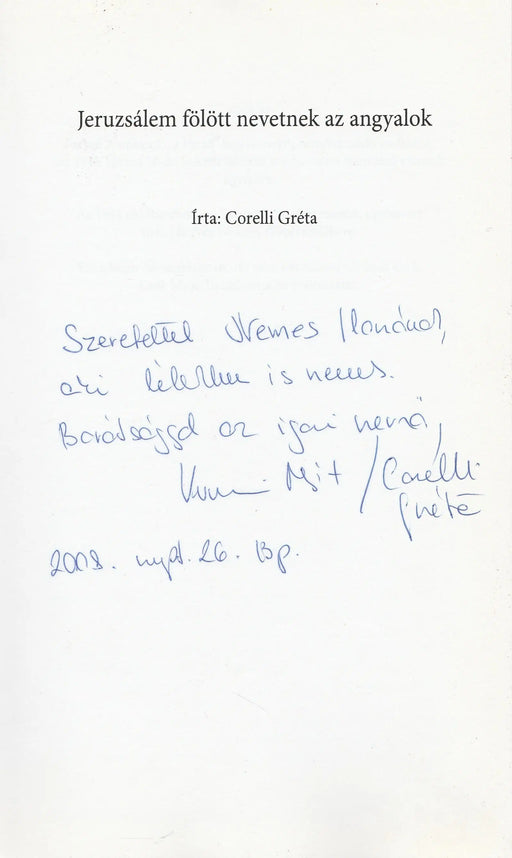 Jeruzsálem fölött nevetnek az angyalok
Írta: Corelli Gréta
Szeretettel Nemes Ilonának,
aki lélekben is nemes.
Barátsággal az igazi nevén,
/ Corelli
Gréta
2008. 26. Bp.